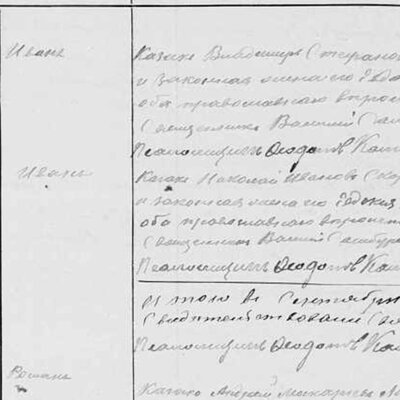 Иванъ
Казакъ Владимиръ Стефано
и законная жена его Евдо
оба православнаго вѣроис
Священникъ Василий Сам
Псаломщикъ Ѳеодотовъ Кал
Иванъ
Казакъ Николай Ивановъ
и законная жена его Евдокия
оба православнаго вѣроиспо
Священникъ Василий Самбур
Псаломщикъ Ѳеодотовъ Кал
Итого въ Сентябрѣ
Свидѣтельствовали Свя
Псаломщикъ Ѳеодотовъ Кал
Романъ
Казакъ Андрей Макаровъ